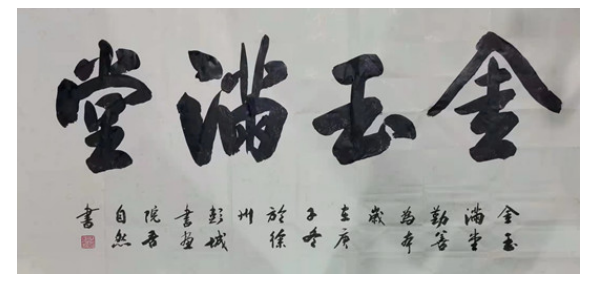 金玉滿堂
金玉
滿堂
勤善
為本
歲
在庚
子冬
於徐
州
彭城
書畫
院
自然
書